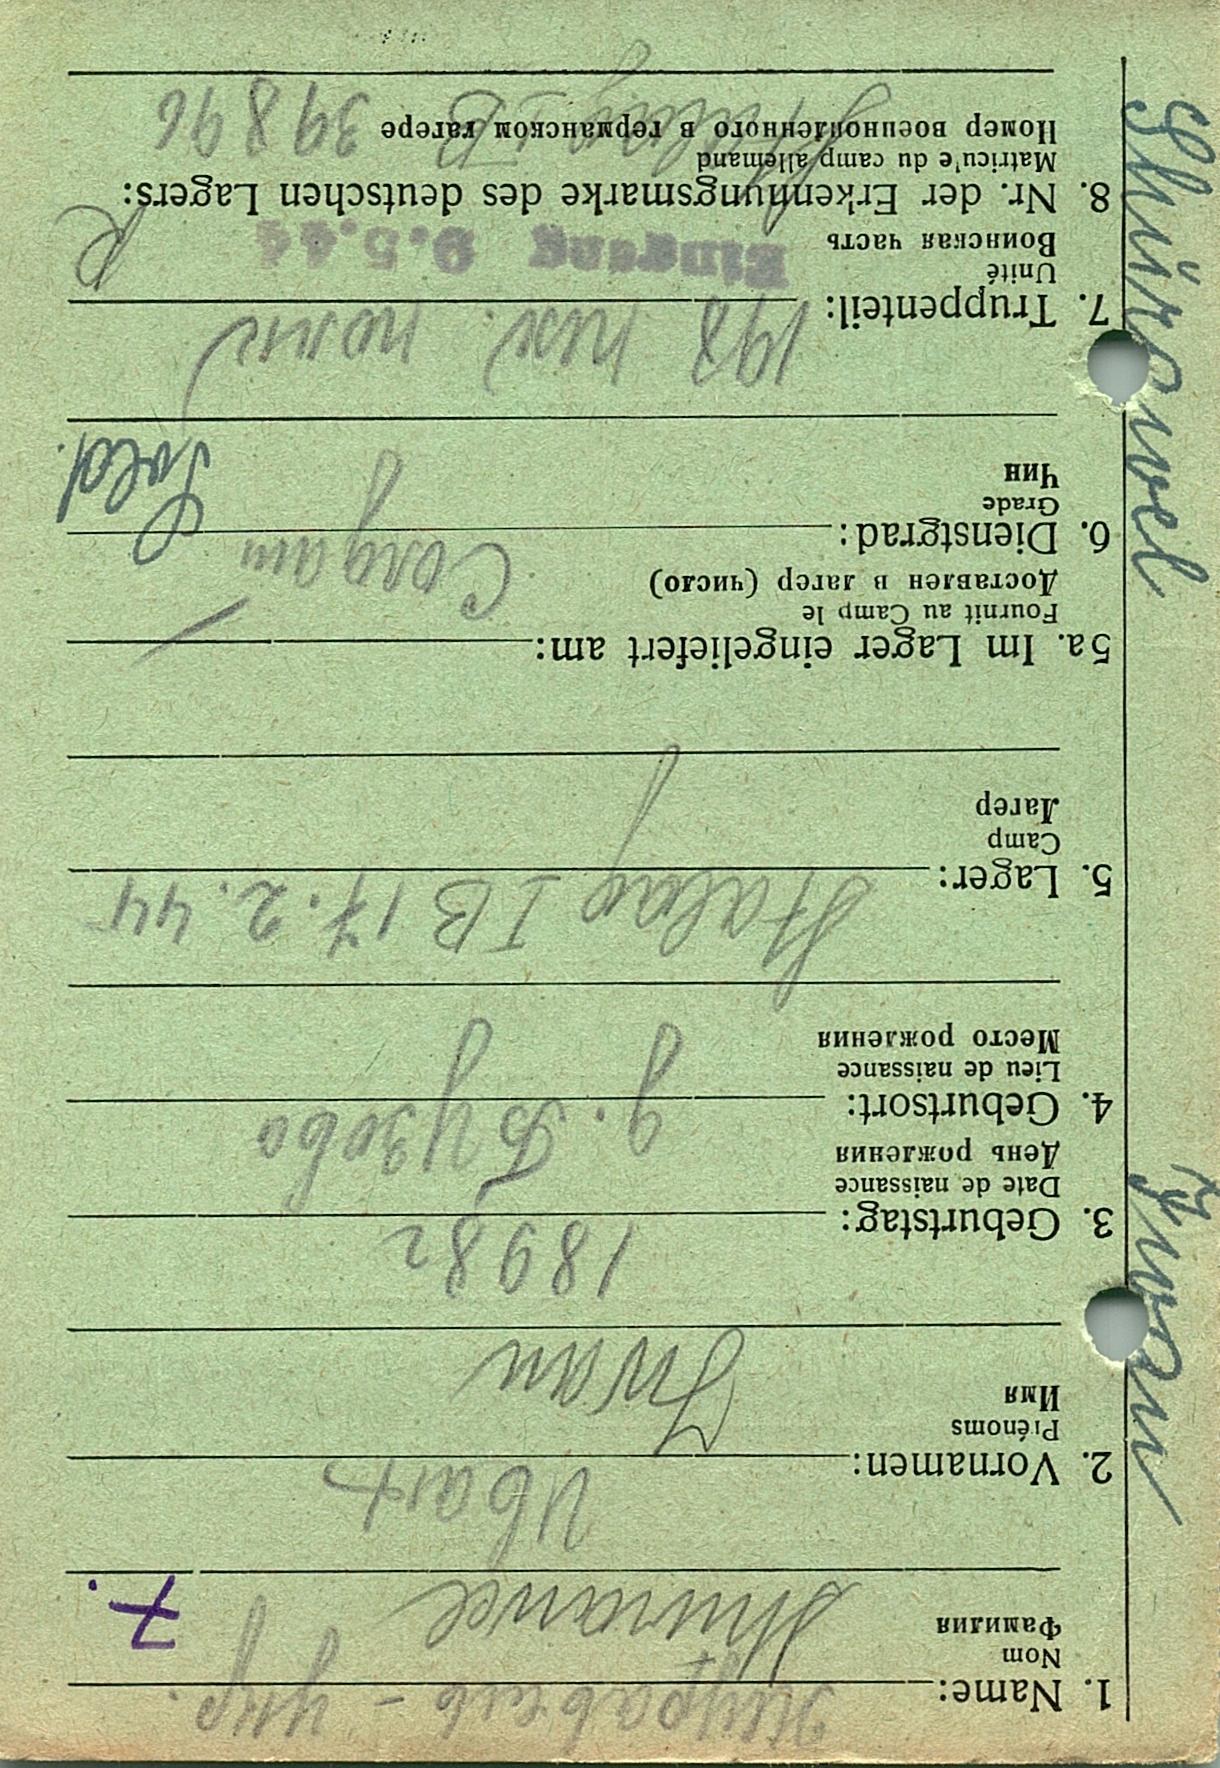 1. Name: Журавель - укр.
Nom
Фамилия
7.
2. Vornamen: Иван
Prénoms
Имя
Iwan
3. Geburtstag: 1898 г
Date de naissance
День рождения
4. Geburtsort: д. Бузово
Lieu de naissance
Место рождения
5. Lager: Stalag I B 17.2.44
Camp
Лагер
5a. Im Lager eingeliefert am:
Fournit au Camp le
Доставлен в лагер (число)
6. Dienstgrad: Солдат Sold.
Grade
Чин
7. Truppenteil: 198 пех. полк
Unité
Воинская часть
Eingang 9.5.44
R
8. Nr. der Erkennungsmarke des deutschen Lagers:
Matricu'e du camp allemand
Номер военнопленного в германском лагере
Stalag I B 39896
Iwan